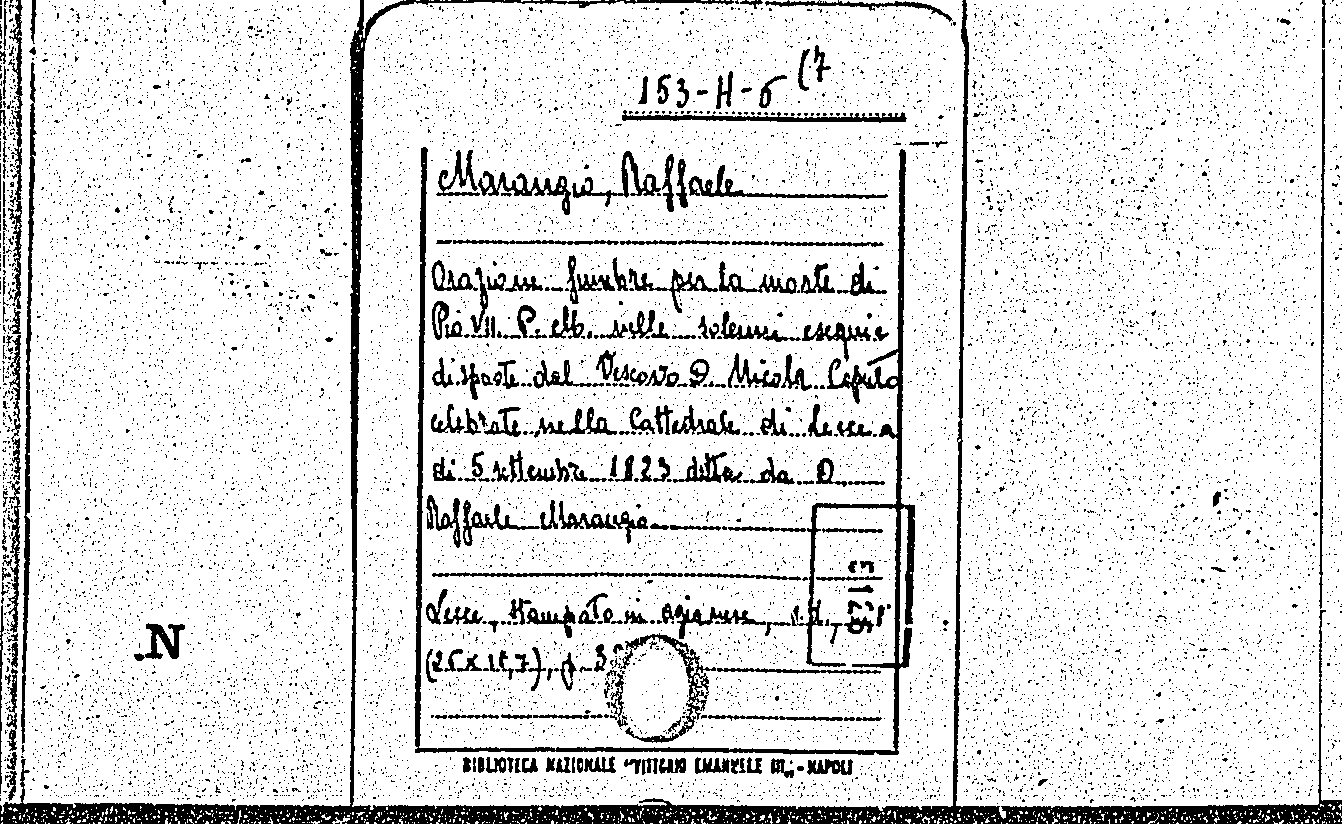 153-H-6 (7
Marangio, Raffaele
Orazione funebre per la morte di
Pio VII. P. M. nelle solenni esequie
disposte dal Vescovo D. Nicola Caputo
celebrate nella Cattedrale di Lecce a
di 5 settembre 1823 detta da D
Raffaele Marangio
Lecce, stampato in Agianese, s.d., 8°
), p. 3
.N
BIBLIOTECA NAZIONALE "VITTORIO EMANUELE III" - NAPOLI